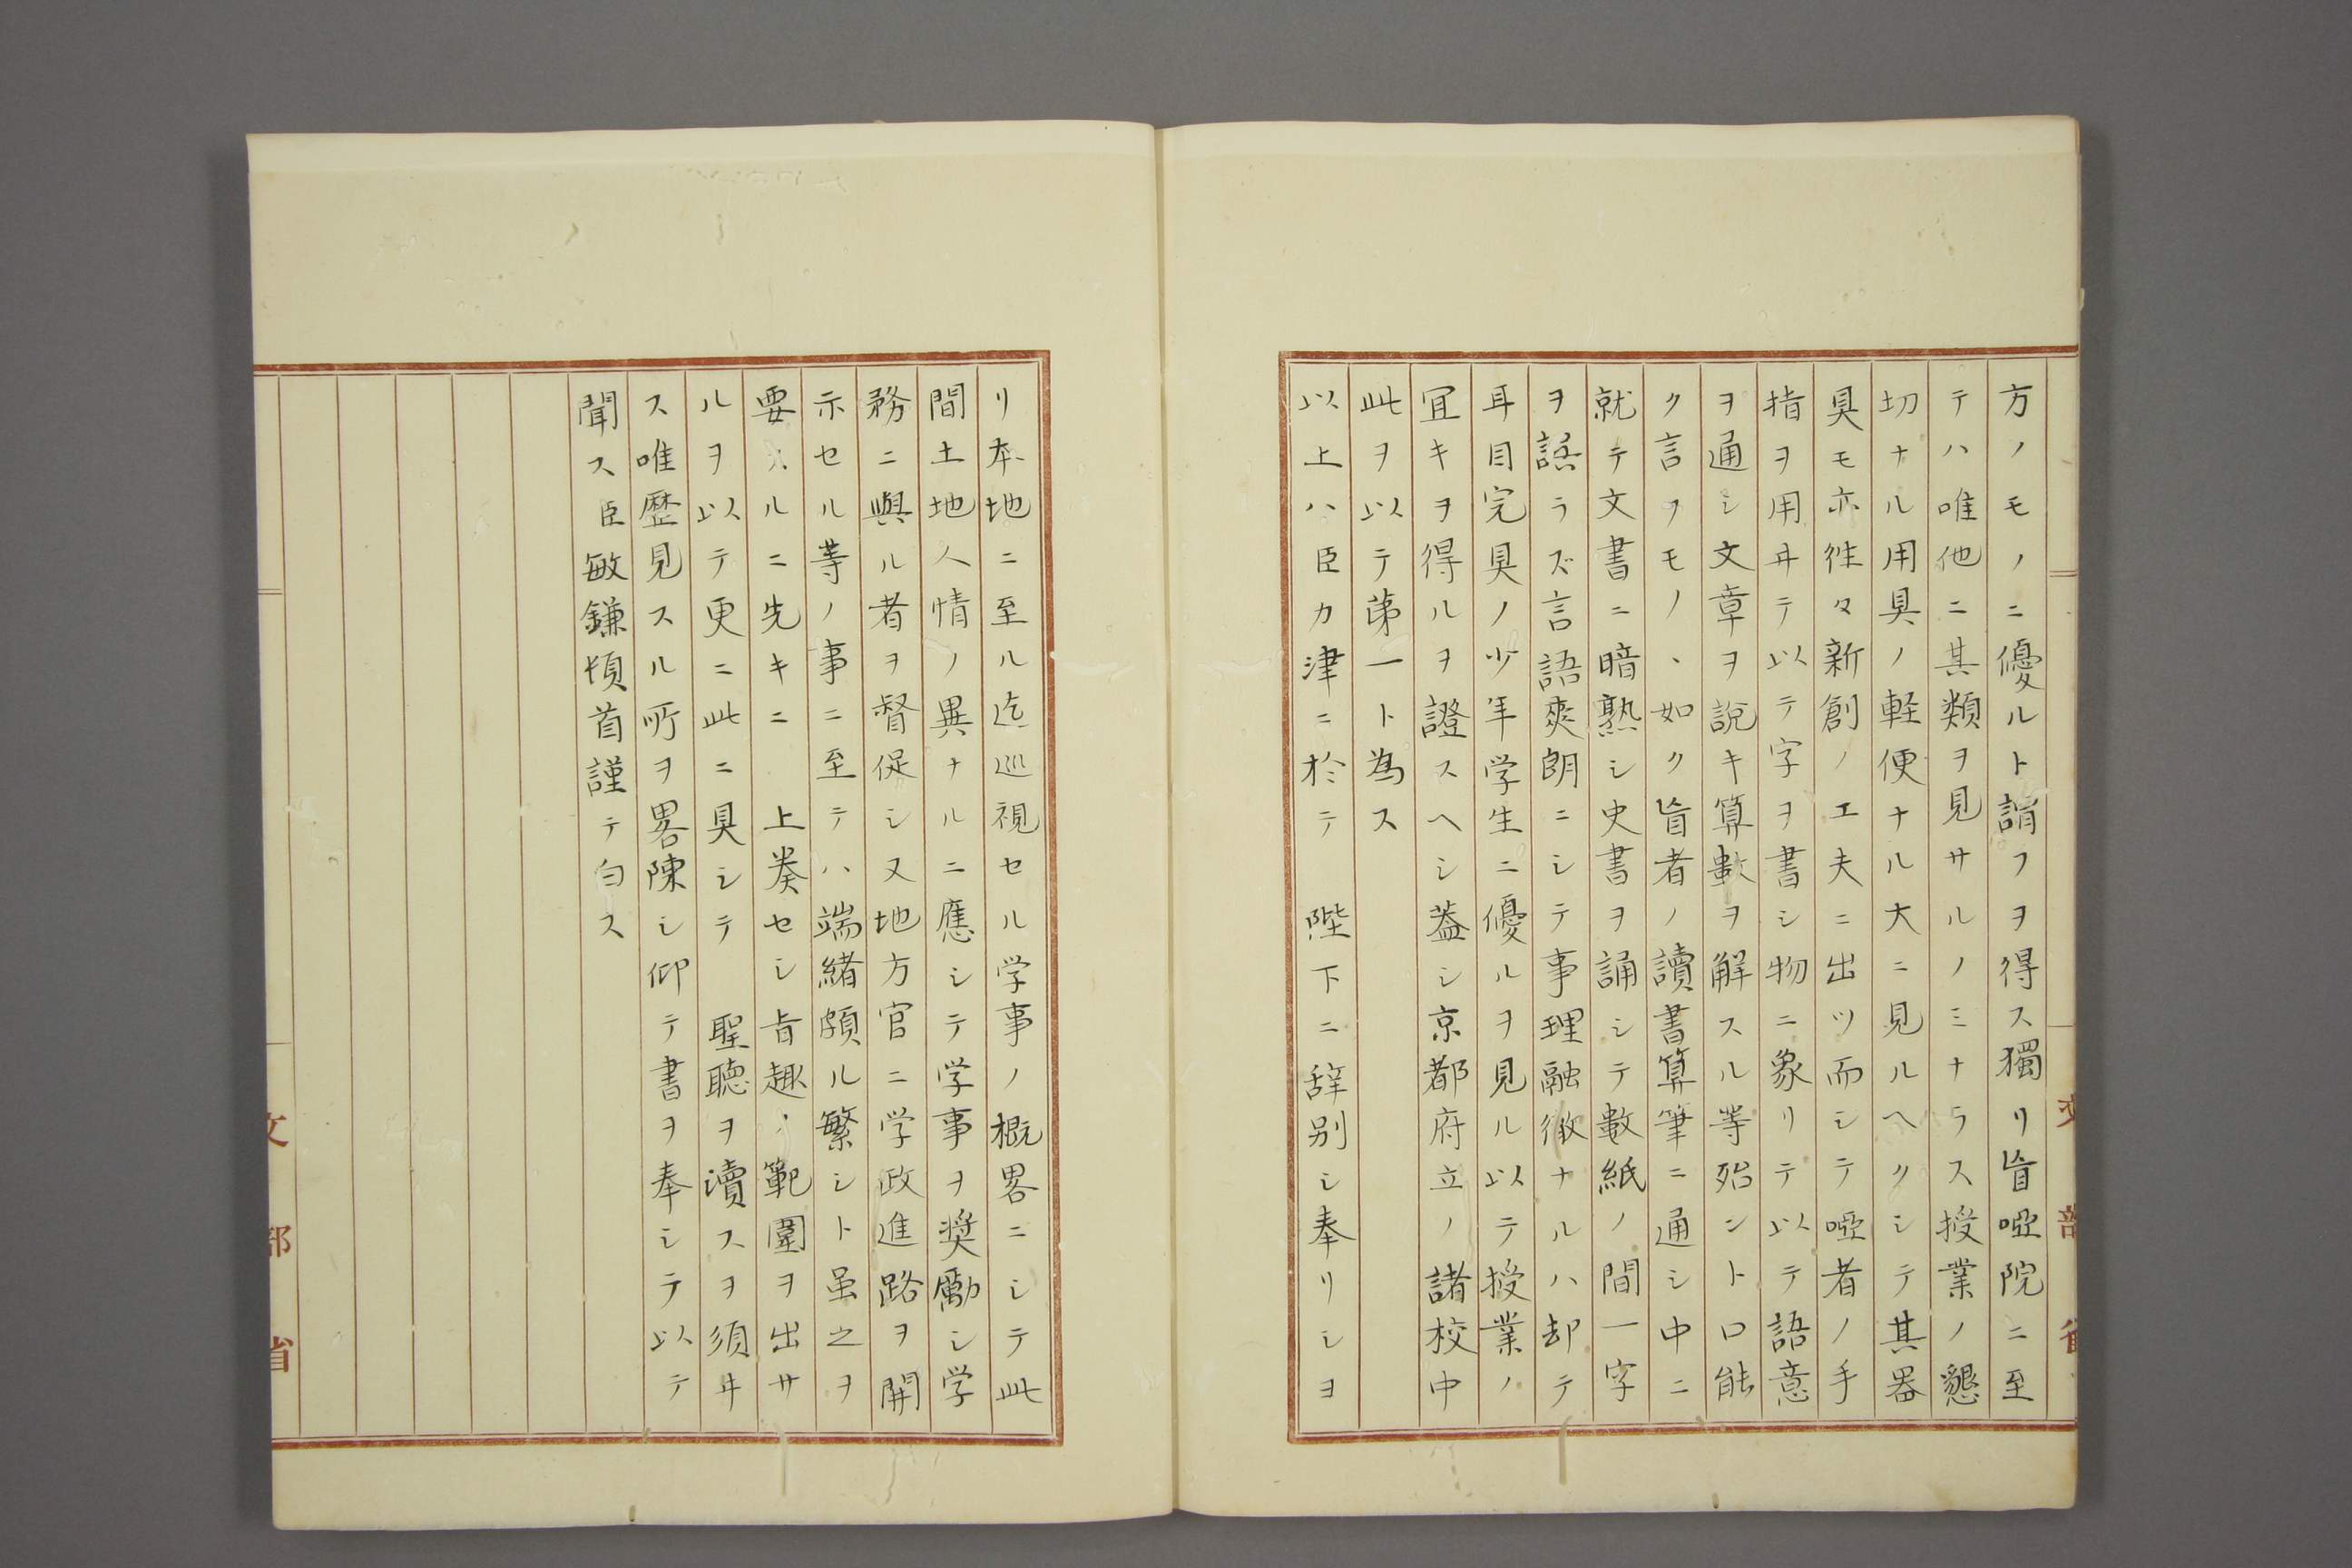 方ノモノニ優ルト謂フヲ得ス獨リ盲啞院ニ至
テハ唯他ニ其類ヲ見サルノミナラス授業ノ懇
切ナル用具ノ軽便ナル大ニ見ルヘクシテ其器
具モ亦徃々新創ノ工夫ニ出ツ而シテ啞者ノ手
指ヲ用ヰテ以テ字ヲ書シ物ニ象リテ以テ語意
ヲ通シ文章ヲ說キ算數ヲ解スル等殆ント口能
ク言フモノヽ如ク盲者ノ讀書算筆ニ通シ中ニ
就テ文書ニ暗熟シ史書ヲ誦シテ數紙ノ間一字
ヲ誤ラズ言語爽朗ニシテ事理融徹ナルハ却テ
耳目完具ノ少年学生ニ優ルヲ見ル以テ授業ノ
冝キヲ得ルヲ證スヘシ蓋シ京都府立ノ諸校中
此ヲ以テ苐一ト為ス
以上ハ臣カ津ニ於テ 陛下ニ辞別シ奉リシヨ
文部省
リ本地ニ至ル迄巡視セル学事ノ概畧ニシテ此
間土地人情ノ異ナルニ應シテ学事ヲ奨勵シ学
務ニ與ル者ヲ督促シ又地方官ニ学政進路ヲ開
示セル等ノ事ニ至テハ端緒頗ル繁シト虽之ヲ
要スルニ先キニ 上奏セシ旨趣ノ範圍ヲ出サ
ルヲ以テ更ニ此ニ具シテ 聖聴ヲ瀆スヲ須ヰ
ス唯歴見スル所ヲ畧陳シ仰テ書ヲ奉シテ以テ
聞ス臣敏鎌頓首謹テ白ス
文部省